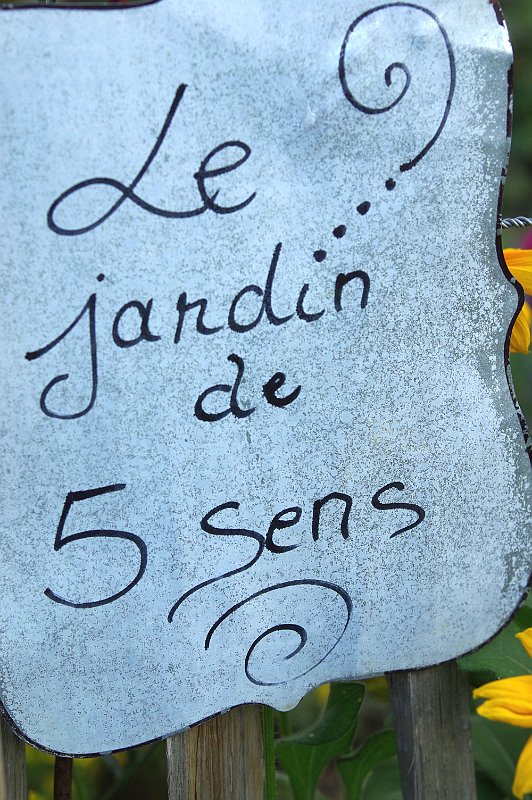 Le
jardin
de
5 Sens